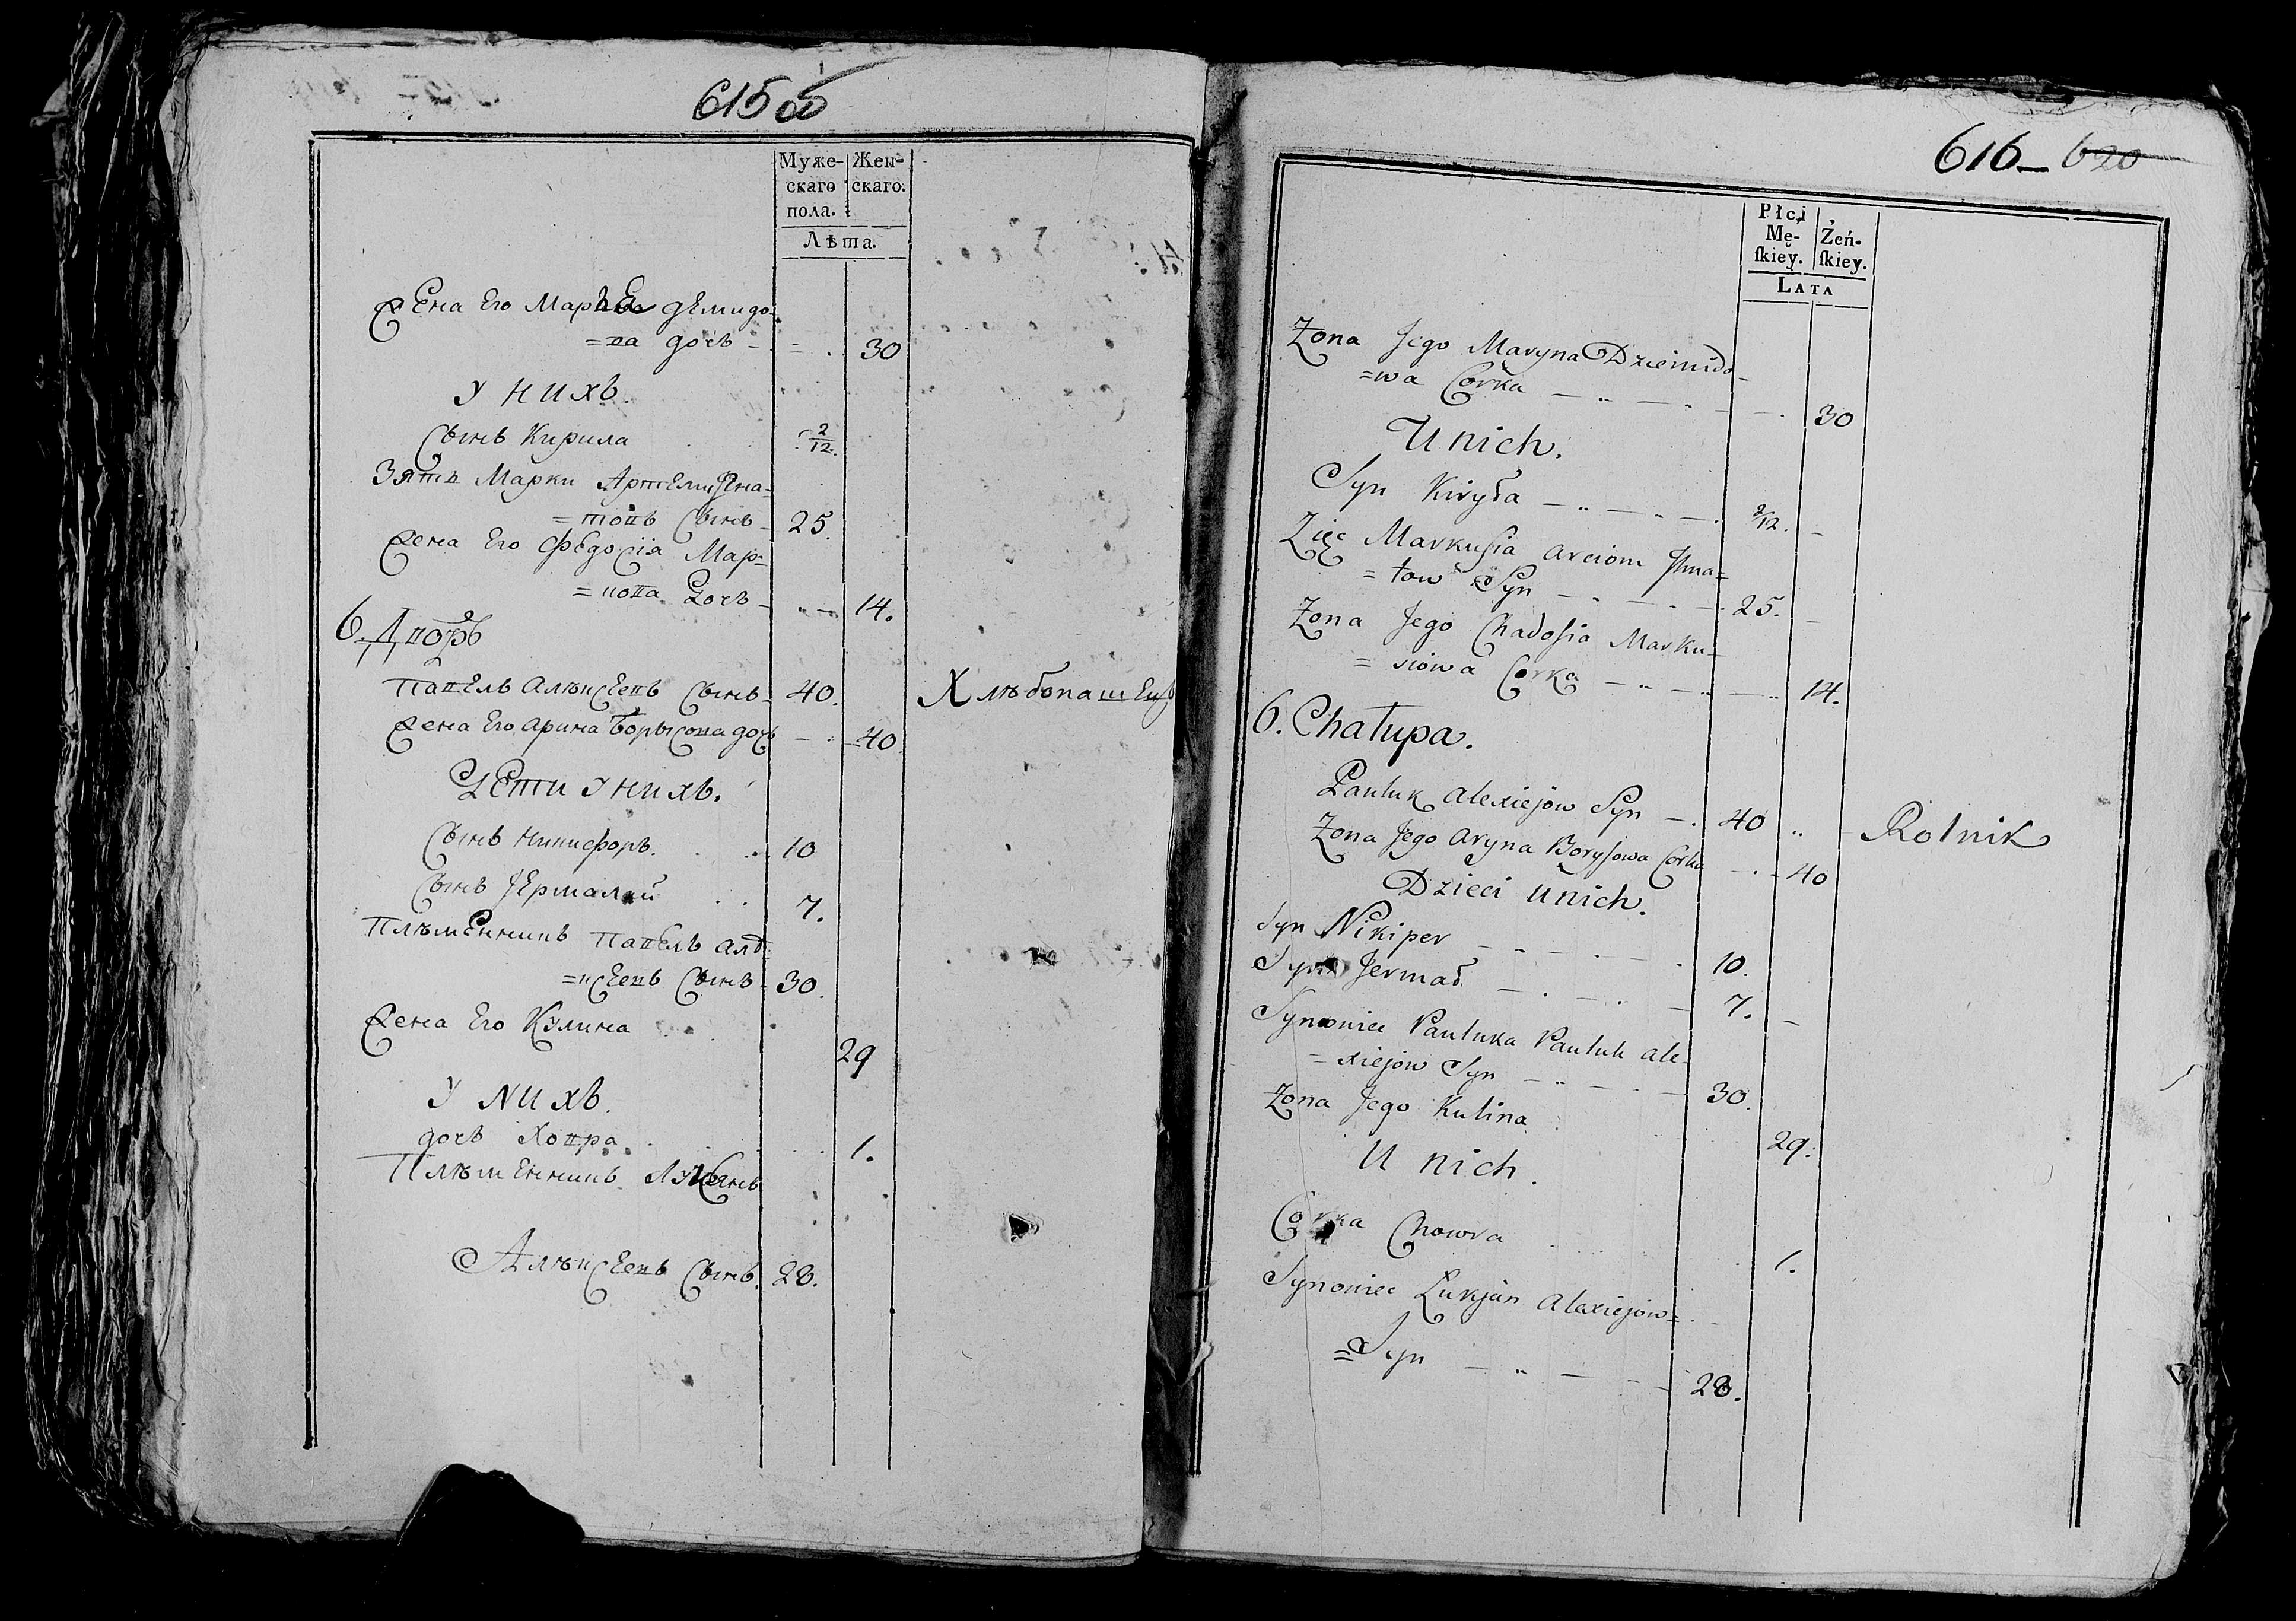 615 об
Муже-
скаго
пола.
Жен-
скаго.
Лѣта.
Жена Его Марья Демидо
=ва дочь - 30
У нихъ.
Сынъ Кирила 2/12.
Зять Марки Артемъ Игна=
=товъ Сынъ 25.
Жена Его Ѳедосія Мар=
=кова Дочь 14.
6. Дворъ
Павелъ Алѣксеевъ Сынъ 40. Хлѣбопашецъ
Жена Его Арина Борысова дочь 40.
Дети У нихъ.
Сынъ Никифоръ. 10
Сынъ Јермалай 7.
Плѣменникъ Павелъ Алѣ
=ксеевъ Сынъ 30.
Жена Его Кулина
29
У нихъ.
дочь Ховра 1.
Плѣменникъ Лукьянъ
Алѣксеевъ Сынъ. 28.
616 - 620
Płci
Mę-
ſkiey.
Żeń-
ſkiey.
LATA
Zona Jego Maryna Dziemido
=wa Corka 30
U nich.
Syn Kiryła 2/12.
Zięc Markuſia Arciom Jhna=
=tow Syn 25.
Zona Jego Chadoſia Marku=
=siowa Corka 14.
6. Chałupa.
Pauluk Alexiejow Syn 40 Rolnik
Zona Jego Aryna Boryſowa Corka 40
Dzieci U nich.
Syn Nikiper 10.
Syn Jermał 7.
Synowiec Pauluka Pauluk Ale-
=xiejow Syn 30.
Zona Jego Kulina
29.
U nich.
Corka Chowra 1.
Synowiec Lukjan Alexiejow=
=Syn 28.